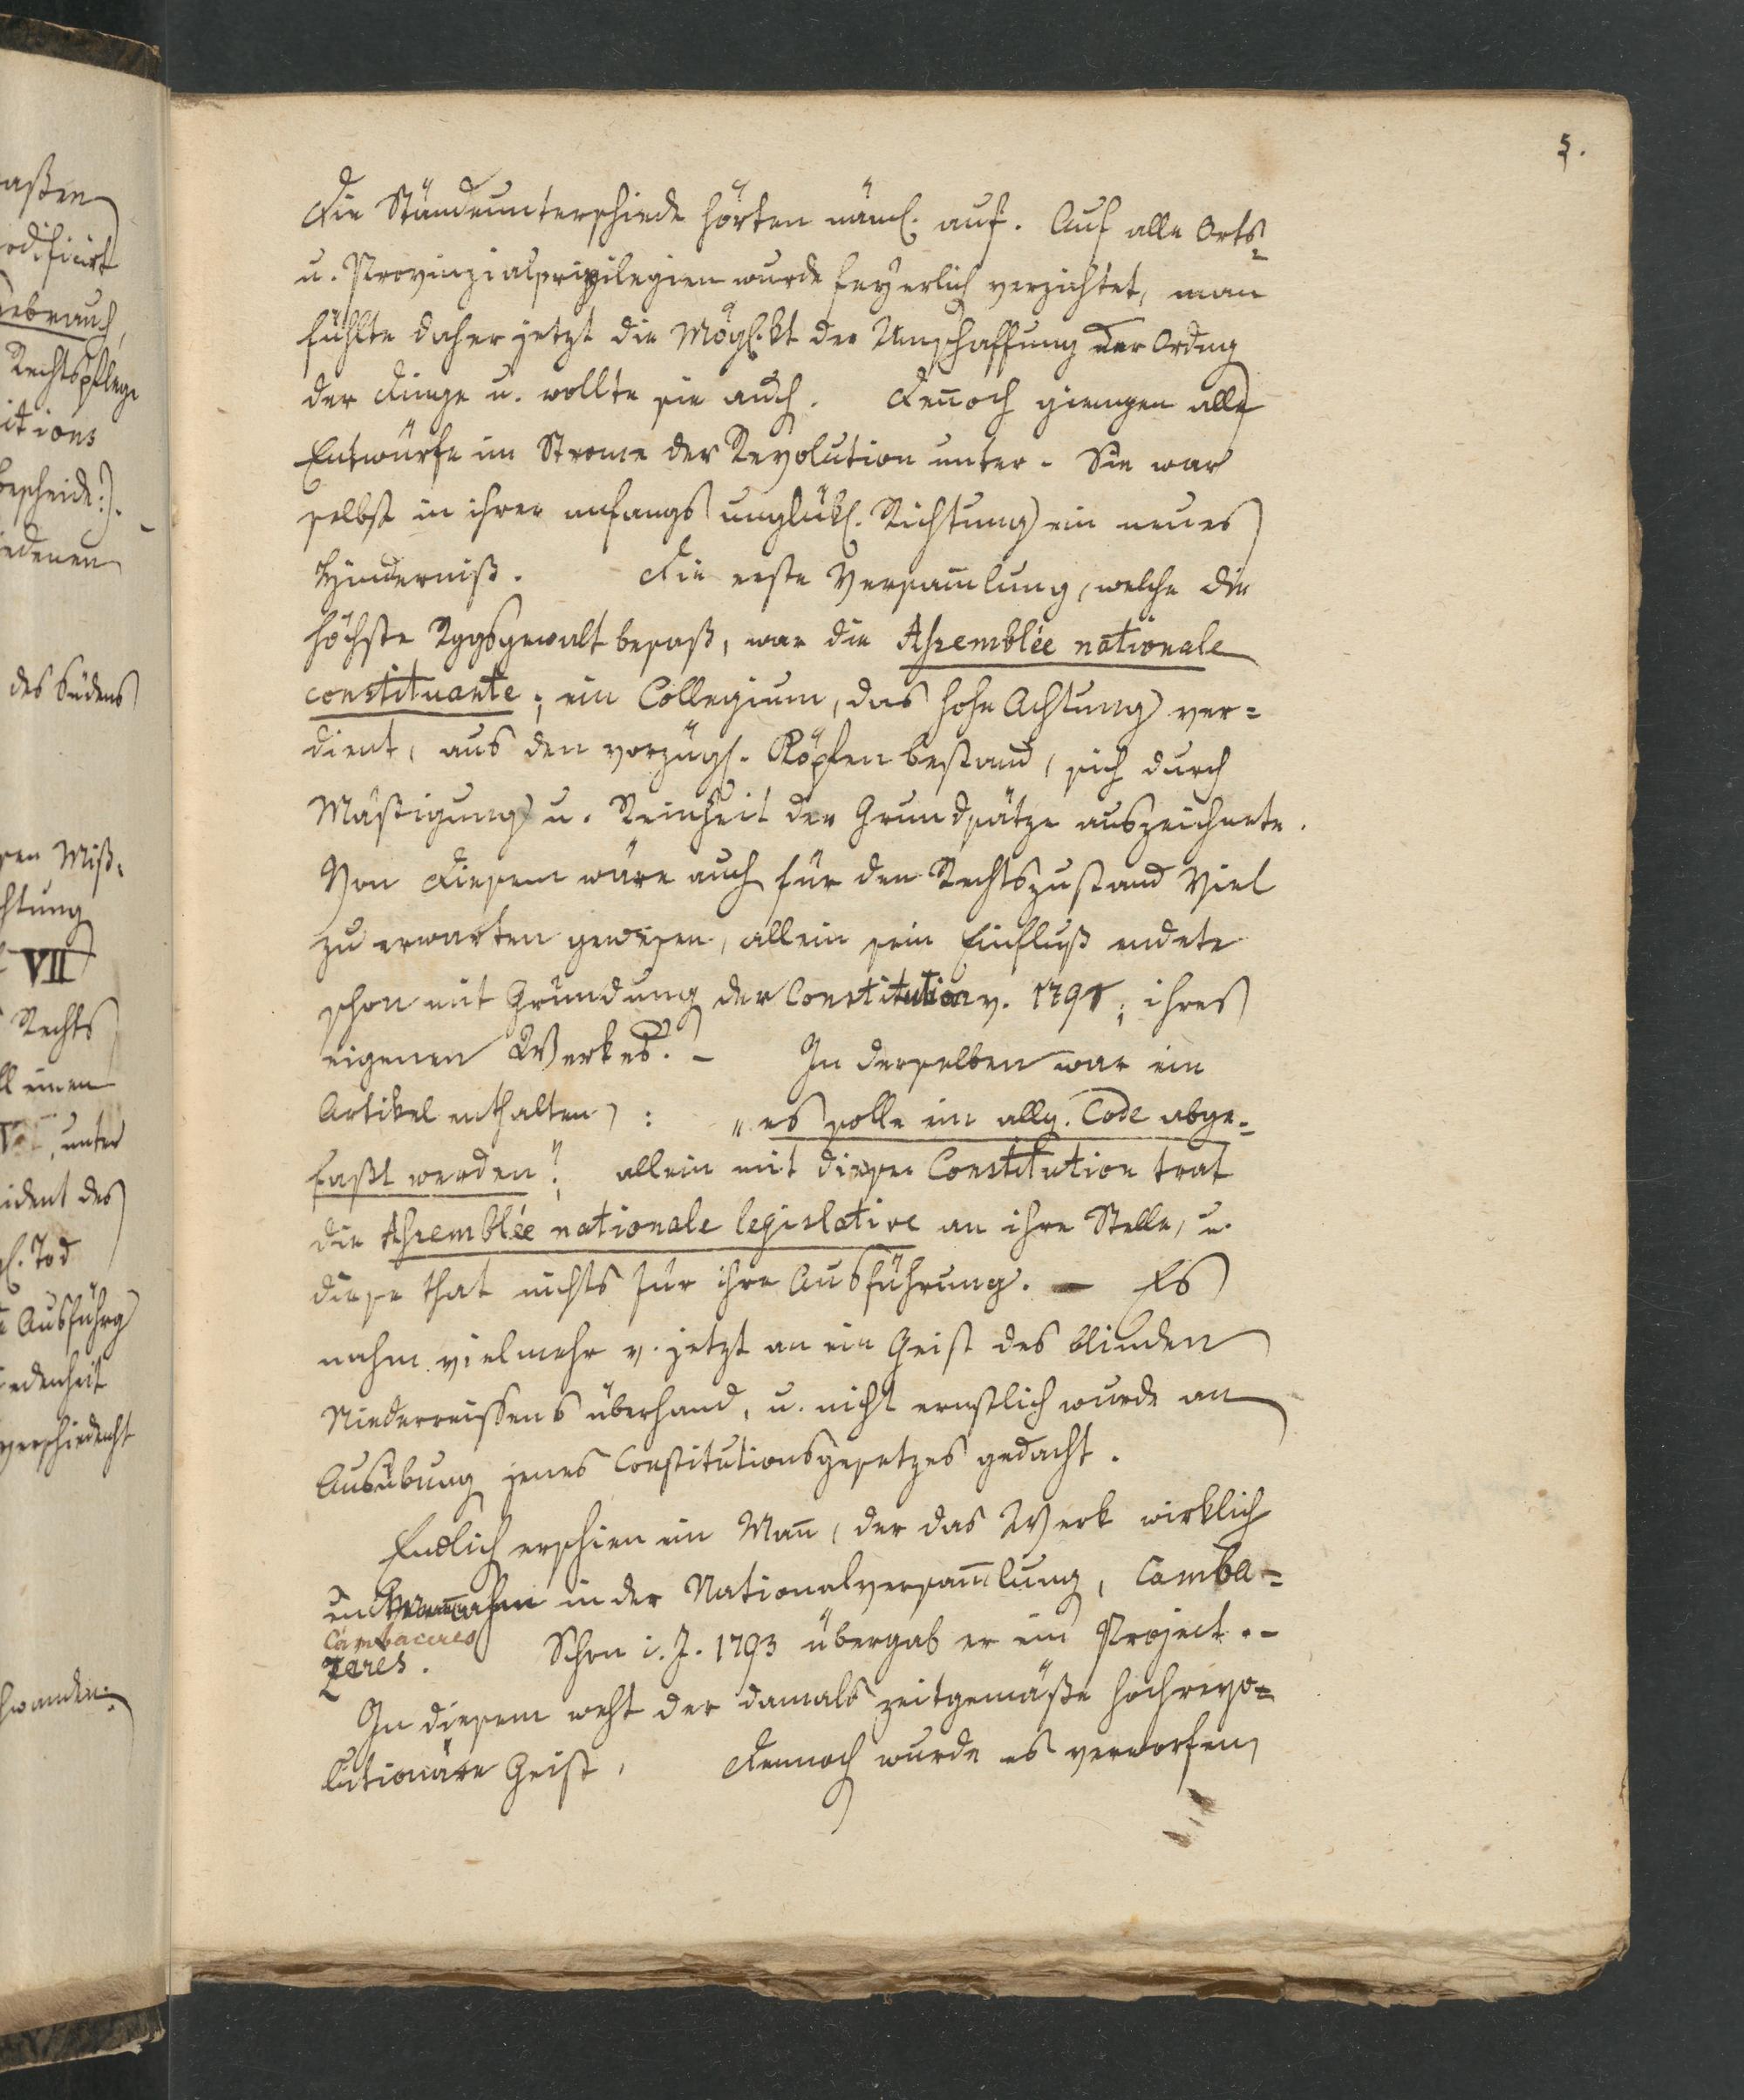 5.
Die Ständeunterschiede hörten näml. auf. Auf alle Orts-
u. Provinzialprivilegien wurde feyerlich verzichtet, man
fühlte daher jetzt die Mögl.kt der Umschaffung der Ordng
der Dinge u. wollte sie auch. Deñoch giengen alle
Entwürfe im Strome der Revolution unter. Sie war
selbst in ihrer anfangs unglükl. Richtung ein neues
Hinderniß. Die erste Versam̃lung, welche die
höchste Rggsgewalt besaß, war die Assemblée nationale
constituante; ein Collegium, das hohe Achtung ver=
dient, aus den vorzügl. Köpfen bestand, sich durch
Mäßigung u. Reinheit der Grundsätze auszeichnete.
Von diesem wäre auch für den Rechtszustand viel
zu erwarten gewesen, allein sein Einfluß endete
schon mit Gründung der Constitution v. 1791; ihres
eigenen Werkes. - In derselben war ein
Artikel enthalten: „es solle ein allg. Code abge-
faßt werden"; allein mit dieser Constitution trat
die Assemblée nationale legislative an ihre Stelle, u.
diese that nichts für ihre Ausführung. — Es
nahm vielmehr v. jetzt an ein Geist des blinden
Niederreissens überhand, u. nicht ernstlich wurde an
Ausübung jenes Constitutionsgesetzes gedacht.
Endlich erschien ein Mañ, der das Werk wirklich
unternahm in der Nationalversam̃lung, Camba=
Cambaceres
zeres. Schon i. J. 1793 übergab er ein Project. -
In diesem weht der damals zeitgemäße hochrevo=
lutionäre Geist, Dennoch wurde es verworfen,
aßen
odificirt
Gebrauch,
Rechtspflege
itions
bescheide:).
iedenen
des Südens
ren Miß-
chtung
VII
Rechts
ll einen
, unter
ident des
l. Tod
Ausführg
iedenheit
verschiedenht
hwanden.